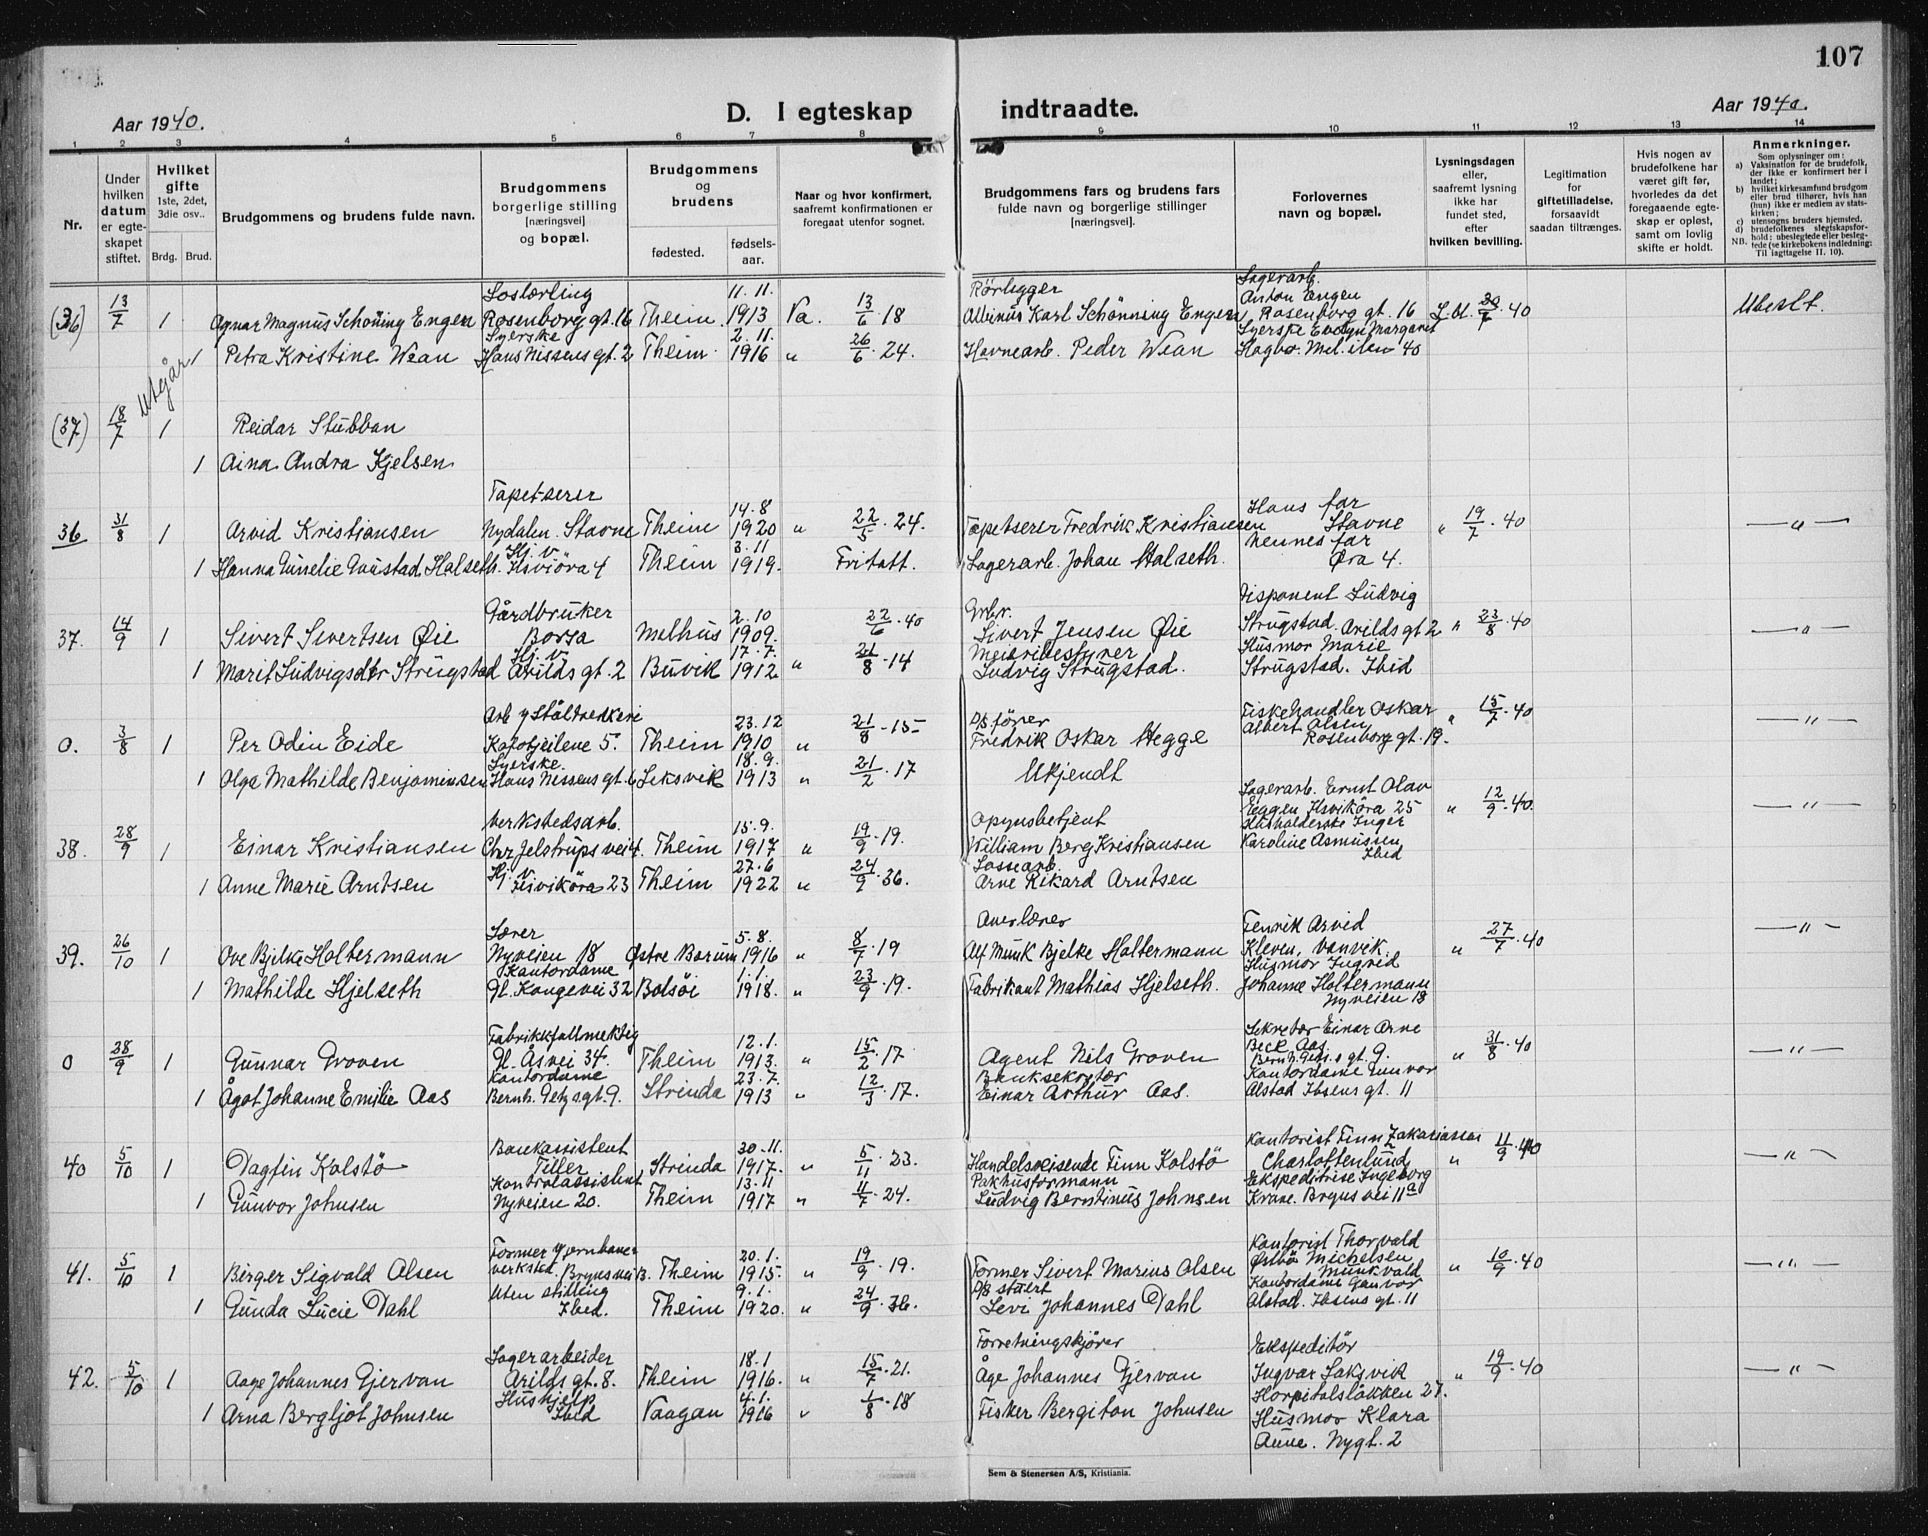 107
Aar 1940.
D. I egteskap indtraadte.
Aar 1940.
1 2 3 4 5 6 7 8 9 10 11 12 13 14
Nr.
Under hvilken datum er egteskapet stiftet.
Hvilket gifte 1ste, 2det, 3die osv..
Brdg. Brud.
Brudgommens og brudens fulde navn.
Brudgommens borgerlige stilling [næringsvei] og bopæl.
Brudgommens og brudens
fødested. fødselsaar.
Naar og hvor konfirmert, saafremt konfirmationen er foregaat utenfor sognet.
Brudgommens fars og brudens fars fulde navn og borgerlige stillinger [næringsvei].
Forlovernes navn og bopæl.
Lysningsdagen eller, saafremt lysning ikke har fundet sted, efter hvilken bevilling.
Legitimation for giftetilladelse, forsaavidt saadan tiltrænges.
Hvis nogen av brudefolkene har været gift før, hvorledes da det foregaaende egteskap er opløst, samt om lovlig skifte er holdt.
Anmerkninger.
Som oplysninger om:
a) Vaksination for de brudefolk, der ikke er konfirmert her i landet;
b) hvilket kirkesamfund brudgom eller brud tilhører, hvis han (hun) ikke er medlem av statskirken;
c) utensogns bruders hjemsted.
d) brudefolkenes slegtskapsforhold: ubeslegtede eller beslegtede (se kirkebokens indledning: Til iagttagelse II. 10).
NB.
Løslærling 11.11. Rørlegger Lagerarb.
(36) 13/7 1 Agnar Magnus Schöning Engen Rosenborg gt. 16 Theim 1913 Va. 13/6 · 18 Albinus Karl Schönning Engen Anton Engen Rosenborg gt. 16 40 Ubeslt.
Syerske 2.11. Syerske Evelyn Margaret
1 Petra Kristine Wean Hans Nissens gt. 2 Theim 1916 " 26/6 · 24. Havnearb. Peder Wean Ilen 40
Utgår
(37) 18/7 1 Reidar Stubban
1 Aina Andra Kjelsen
Tapetserer 14.8 Hans far
36 31/8 1 Arvid Kristiansen Nydalen. Stavne Theim 1920 " 22/5 · 24. Tapetserer Fredrik Kristiansen Stavne " 19/7 · 40 — " —
Hj. v. 3.11 Hennes far
1 Hanna Emelie Halseth. Ilsviöra 4 Theim 1919. Fritatt. Lagerarb. Johan Halseth. Øra 4.
Gårdbruker 2.10 Grbr. Disponent Ludvig
37. 14/9 1 Sivert Sivertsen Øie Borsa Melhus 1909. 22/6 · 40 Sivert Jensen Øie Strugstad. Arilds gt 2 " 23/8 · 40 — " —
Hj. v. 17.7. Meieribestyrer Husmor Marie
1 Marit Ludvigsdtr Strugstad Arilds gt. 2 Buvik 1912 " 21/8 · 14 Ludvig Strugstad. Strugstad. Ibid
23.12 Fiskehandler Oskar
0. 3/8 1 Per Odin Eide 5. Theim 1910 " 21/8 · 15 Fredrik Oskar Hegge Albert Olsen Rosenborg gt. 19. " 15/7 · 40 — " —
Syerske. 18.9.
1 Olga Mathilde Benjaminsen Hans Nissens gt. 6 Leksvik 1913 " 21/2 · 17 Ukjendt
Verkstedsarb. 15.9. Opsynsbetjent Lagerarb. Ernst Olav
38. 28/9 1 Einar Kristiansen Chr Jelstrups vei 4. Theim 1917 " 19/9 · 19. William Berg Kristiansen Eggen, Ilsviköra 25 " 12/9 · 40 — " —
Hj. v. 27.6 Lossearb. Husholderske Inger Karoline Asmussen Ibid
1 Anne Marie Arntsen Ilsviköra 23 Theim 1922 " 24/9 · 36. Arne Rikard Arntsen
Lærer 5.8. Overlærer Fenrik Arvid
39. 26/10 1 Ove Bjelke Holtermann Nyveien 18 Østre Bærum 1916 " 8/7 · 19 Alf Munk Bjelke Holtermann Kleven, Vanvik " 27/7 · 40 — " —
Kontordame 1.1. Husmor Ingrid
1 Mathilde Hjelseth Gl. Kongevei 32 Bolsöi 1918. " 23/9 · 19. Fabrikant Mathias Hjelseth. Johanne Holtermann Nyveien 18
Fabrikkfullmektig 12.1. Sekretær Einar Arne
0 28/9 1 Gunnar Groven Gl. Åsvei 34. Theim 1913. " 15/2 · 17 Agent Nils Groven Beck Aas. Bernh. Getz's gt. 9. " 31/8 · 40 — " —
Kontordame 23.7. Banksekretær Kontordame Gunvor
1 Ågot Johanne Emilie Aas Bernh. Getzsgt. 9. Strinda 1913 " 12/3 · 17. Einar Arthur Aas. Alstad Ibsens gt. 11
Bankassistent 30.11. Kontorist Finn Zakariassen
40 5/10 1 Dagfin Kolstö Tiller Strinda 1917. " 5/11 · 23. Handelsreisende Finn Kolstö Charlottenlund " 11/9 · 40 — " —
Kontorassistent 13.11 Pakhusformann Ekspeditrise Ingeborg
1 Gunvor Johnsen Nyveien 20. Theim 1917 " 11/7 · 24. Ludvig Berntinus Johnsen Krane. Bynsvei 11a
Former 20.1. Kontorist Thorvald
41. 5/10 1 Birger Sigvald Olsen verksted. Bynsvei Theim 1915. " 19/9 · 19. Former Sivert Marius Olsen Østbö Michelsen Munkvold " 10/9 · 40 — " —
Uten stilling 9.1. Kontordame Gunvor
1 Gunda Lucie Dahl Ibid. Theim 1920. " 24/9 · 36. Levi Johannes Dahl Alstad. Ibsens gt. 11
Lagerarbeider 18.1 Forretningskjörer Ekspeditör
42. 5/10 1 Aage Johannes Gjervan Arilds gt. 8. Theim 1916. " 15/7 · 21. Åge Johannes Gjervan Ingvar Saksvik Hospitalslökken 27. " 19/9 · 40 — " —
Hushjelp 4.1. Husmor Klara
1 Arna Bergljot Johnsen Ibid Vaagan 1916 " 1/8 · 18 Fisker Bergiton Johnsen Aune. Nygt. 2
Sem & Stenersen A/S, Kristiania.